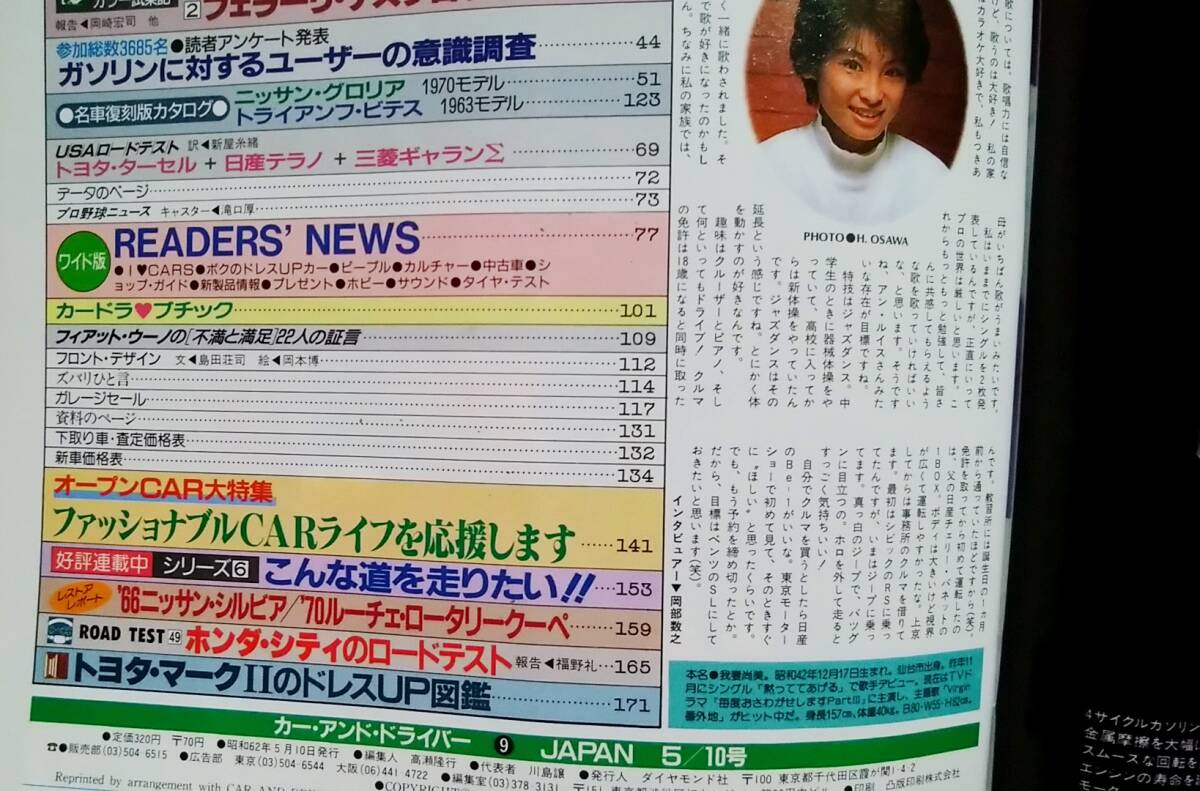 カラー試乗記
報告◀岡崎宏司 他
2
参加総数3685名 ●読者アンケート発表
ガソリンに対するユーザーの意識調査 44
●名車復刻版カタログ●
ニッサン・グロリア 1970モデル 51
トライアンフ・ビテス 1963モデル 123
USAロードテスト 訳◀新屋糸緒
トヨタ・ターセル + 日産テラノ + 三菱ギャランΣ 69
データのページ 72
プロ野球ニュース キャスター◀滝口厚 73
ワイド版
READERS' NEWS 77
●I♥CARS●ボクのドレスUPカー●ピープル●カルチャー●中古車●シ
ョップ・ガイド●新製品情報●プレゼント●ホビー●サウンド●タイヤ・テスト
カードラ♥プチック 101
フィアット・ウーノの[不満と満足]22人の証言 109
フロント・デザイン 文◀島田荘司 絵◀岡本博 112
ズバリひと言 114
ガレージセール 117
資料のページ 131
下取り車・査定価格表 132
新車価格表 134
オープンCAR大特集
ファッショナブルCARライフを応援します 141
好評連載中 シリーズ⑥ こんな道を走りたい!! 153
レストアレポート '66ニッサン・シルビア/'70ルーチェ・ロータリークーペ 159
ROAD TEST 49 ホンダ・シティのロードテスト 報告◀福野礼 165
トヨタ・マークIIのドレスUP図鑑 171
歌については、歌唱力には自信な
けど、歌うのは大好き！ 私の家
カラオケ大好きで、私もつきあ
く一緒に歌わされました。そ
で歌が好きになったのかもし
ん。ちなみに私の家族では、
PHOTO●H. OSAWA
母がいちばん歌がうまいみたいです。
私はいままでにシングルを2枚発
表しているんですが、正直にいって
プロの世界は厳しいと思います。こ
れからもっともっと勉強して、皆さ
んに共感してもらえるよう
な歌を歌っていければいい
な、と思います。そうです
ね、アン・ルイスさんみた
いな存在が目標ですね。
特技はジャズダンス。中
学生のときに器械体操をや
っていて、高校に入ってか
らは新体操をやっていたん
です。ジャズダンスはその
延長という感じですね。とにかく体
を動かすのが好きなんです。
趣味はクルーザーとピアノ、そし
て何といってもドライブ！ クルマ
の免許は18歳になると同時に取った
んです。教習所には誕生日の1ヵ月
前から通っていたほどですから（笑）。
免許を取ってから初めて運転したの
は、父の日産チェリー・バネットの
1BOX。ボディは大きいけど視界
が広くて運転しやすかったな。上京
してからは事務所のクルマを借りて
ます。最初はシビックのRSに乗っ
てたんですが、いまはジープに乗っ
てます。真っ白のジープで、バツグ
ンに目立つの。ホロを外して走ると
すっごく気持ちいい！
自分でクルマを買うとしたら日産
のBe-1がいいな。東京モーター
ショーで初めて見て、そのときすぐ
に“ほしい”と思ったくらいです。
でも、もう予約を締め切ったとか。
だから、目標はベンツのSLにして
おきたいと思います（笑）。
インタビュアー▼岡部数之
本名●我妻尚美。昭和42年12月17日生まれ。仙台市出身。昨年11
月にシングル「黙っててあげる」で歌手デビュー。現在はTVド
ラマ「毎度おさわがせしますPartIII」に主演し、主題歌「Virgin
番外地」がヒット中だ。身長157cm、体重40kg。B80・W55・H82cm。
カー・アンド・ドライバー ❾ JAPAN 5/10号
●定価320円 〒70円 ●昭和62年5月10日発行 ●編集人 高瀬隆行 ●代表者 川島譲 ●発行人 ダイヤモンド社 〒100 東京都千代田区霞が関1-4-2
☎●販売部(03)504-6515 ●広告部 東京(03)504-6544 大阪(06)441-4722 ●編集室(03)378-3131 ●印刷 凸版印刷株式会社
Reprinted by arrangement with CAR AND
4サイクルガソリン
金属摩擦を大幅
スムースな回転を
エンジンの寿命を
モーク